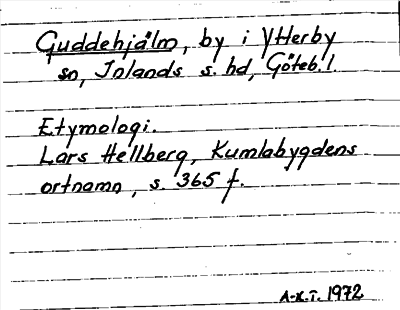 Guddehjälm, by i Ytterby
sn, Inlands s. hd, Göteb. l.
Etymologi.
Lars Hellberg, Kumlabygdens
ortnamn, s. 365 f.
A-K.T. 1972